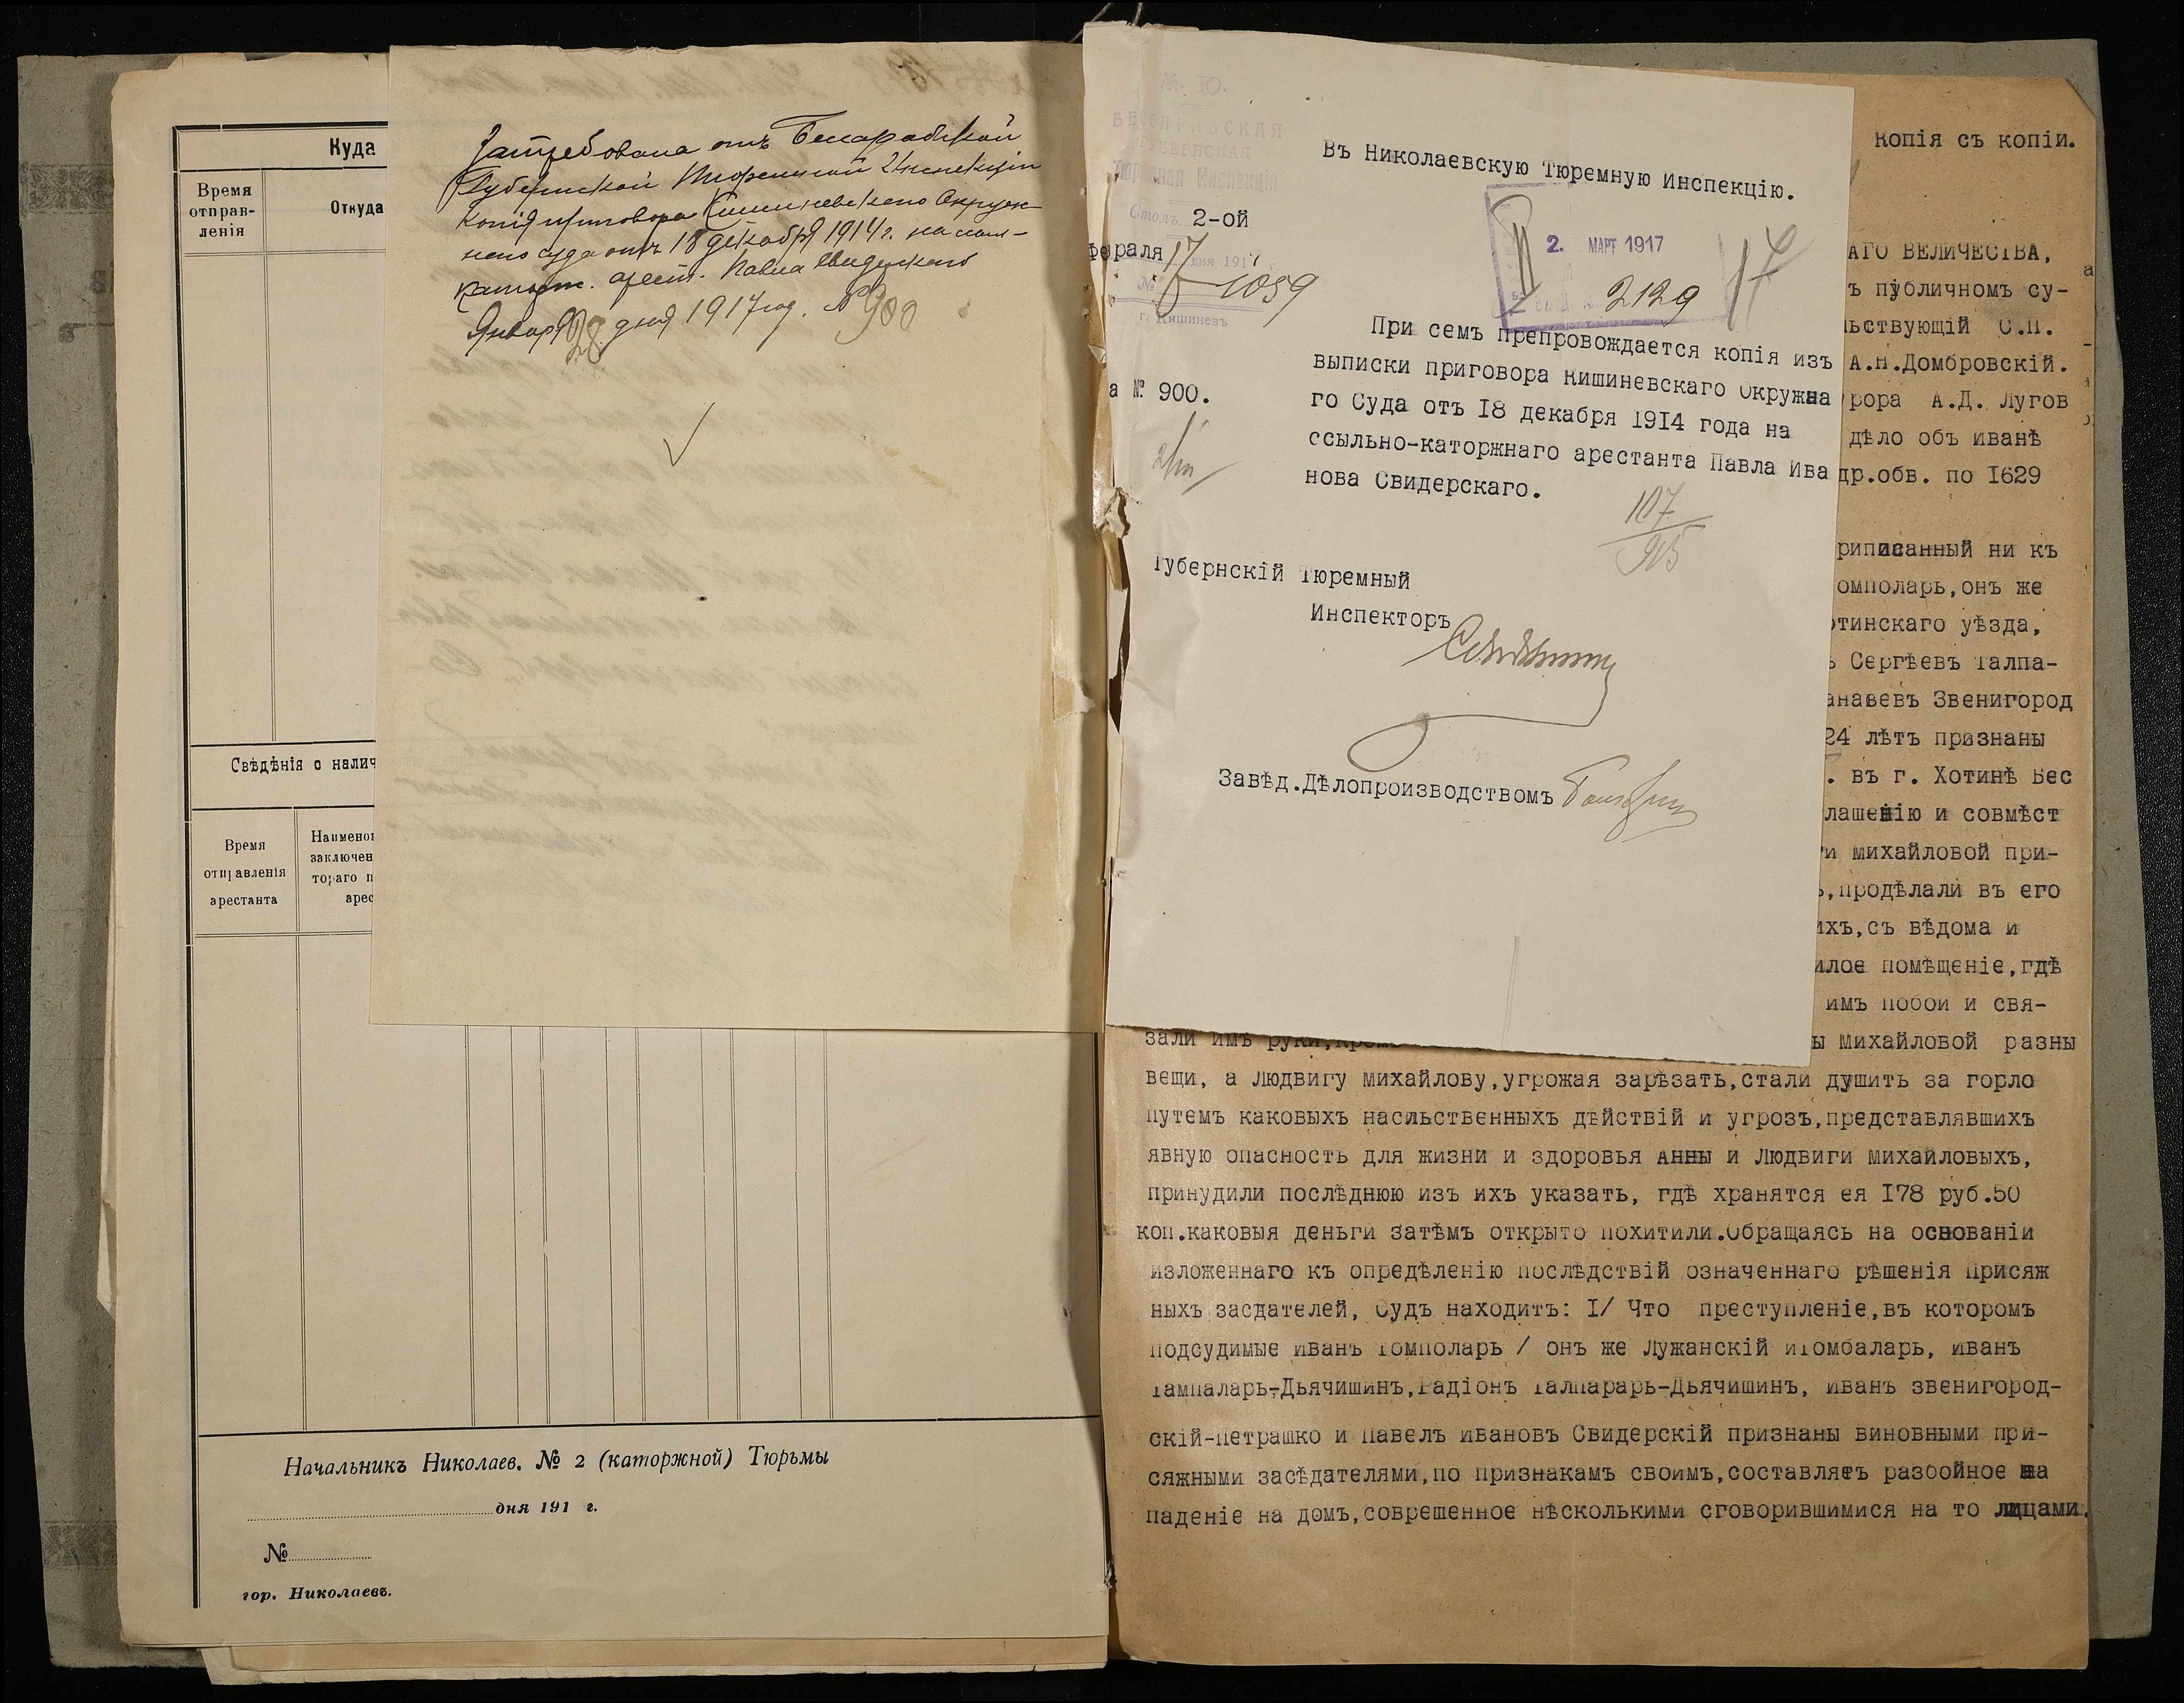 Куда
Время
отправ-
ленія
Откуда
Свѣдѣнія о налич
Время
отправленія
арестанта
Наименов
заключен
тораго п
арес
Начальникъ Николаев. № 2 (каторжной) Тюрьмы
дня 191 г.
№
гор. Николаевъ.
Затребована отъ Бессарабской
Губернской Тюремной Инспекціи
копія приговора Кишиневскаго Окруж-
наго суда отъ 18 декабря 1914 г. на ссыл-
каторж. арест. Павла Свидерскаго
Января 28 дня 1917 год. № 900
М. Ю.
БЕССАРАБСКАЯ
ГУБЕРНСКАЯ
Тюремная Инспекція
Столъ 2-ой
февраля 17 дня 191
№ 1059
г. Кишиневъ
а № 900.
Въ Николаевскую Тюремную Инспекцію.
2. МАРТ 1917
2129
При семъ препровождается копія изъ
выписки приговора Кишиневскаго Окружна
го Суда отъ I8 декабря I9I4 года на
ссыльно-каторжнаго арестанта Павла Ива
нова Свидерскаго.
107
915
Губернскій Тюремный
Инспекторъ
Завѣд.Дѣлопроизводствомъ
Копія съ копіи.
АГО ВЕЛИЧЕСТВА,
ъ публичномъ су-
льствующій С.П.
А.Н.Домбровскій.
рора А.Д. Лугов
дѣло объ Иванѣ
др.обв. по I629
риписанный ни къ
омполарь,онъ же
отинскаго уѣзда,
ъ Сергѣевъ Талпа-
анаевъ Звенигород
24 лѣтъ признаны
. въ г. Хотинѣ Бес
лашенію и совмѣст
ги Михайловой при-
ъ,продѣлали въ его
ихъ,съ вѣдома и
илое помѣщеніе,гдѣ
имъ побои и свя-
зали имъ руки,кром ы Михайловой разны
вещи, а Людвигу Михайлову,угрожая зарѣзать,стали душить за горло
путемъ каковыхъ насильственныхъ дѣйствій и угрозъ,представлявшихъ
явную опасность для жизни и здоровья Анны и Людвиги Михайловыхъ,
принудили послѣднюю изъ ихъ указать, гдѣ хранятся ея I78 руб.50
коп.каковыя деньги затѣмъ открыто похитили.Обращаясь на основаніи
изложеннаго къ опредѣленію послѣдствій означеннаго рѣшенія Присяж
ныхъ засдателей, Судъ находитъ: I/ Что преступленіе,въ которомъ
подсудимые Иванъ Томполарь / онъ же Лужанскій иТомбаларь, Иванъ
Тампаларь-Дьячишинъ,Радіонъ Талпарарь-Дьячишинъ, Иванъ Звенигород-
скій-Петрашко и Павелъ Ивановъ Свидерскій признаны виновными при-
сяжными засѣдателями,по признакамъ своимъ,составляетъ разбойное на
паденіе на домъ,соврешенное нѣсколькими сговорившимися на то лицами.